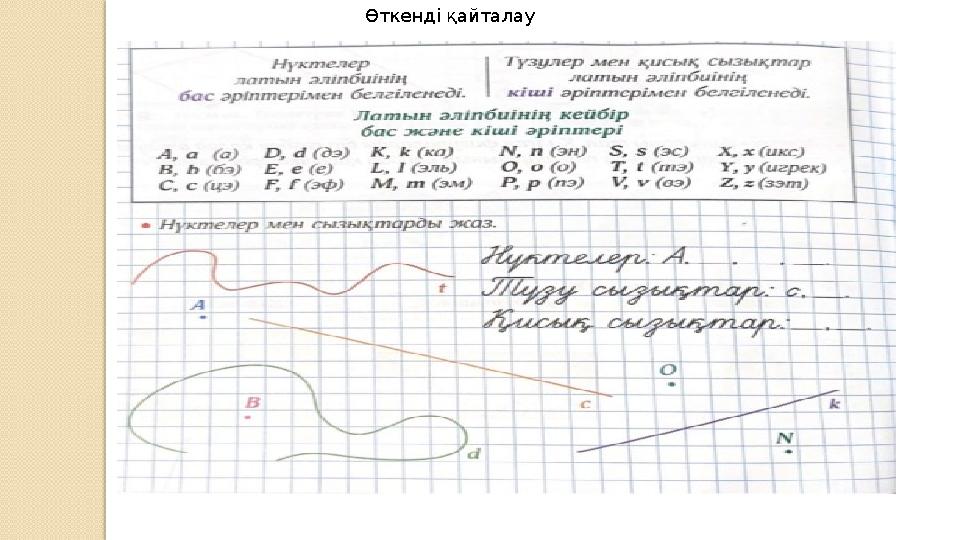 Өткенді қайталау
Нүктелер
латын әліпбиінің
бас әріптерімен белгіленеді.
Түзулер мен қисық сызықтар
латын әліпбиінің
кіші әріптерімен белгіленеді.
Латын әліпбиінің кейбір
бас және кіші әріптері
A, a (а) D, d (дэ) K, k (ка) N, n (эн) S, s (эс) X, x (икс)
B, b (бэ) E, e (е) L, l (эль) O, o (о) T, t (тэ) Y, y (игрек)
C, c (цэ) F, f (эф) M, m (эм) P, p (пэ) V, v (вэ) Z, z (зэт)
• Нүктелер мен сызықтарды жаз.
Нүктелер: A.
Түзу сызықтар: c.
Қисық сызықтар:
t
A
O
B
c
k
N
d